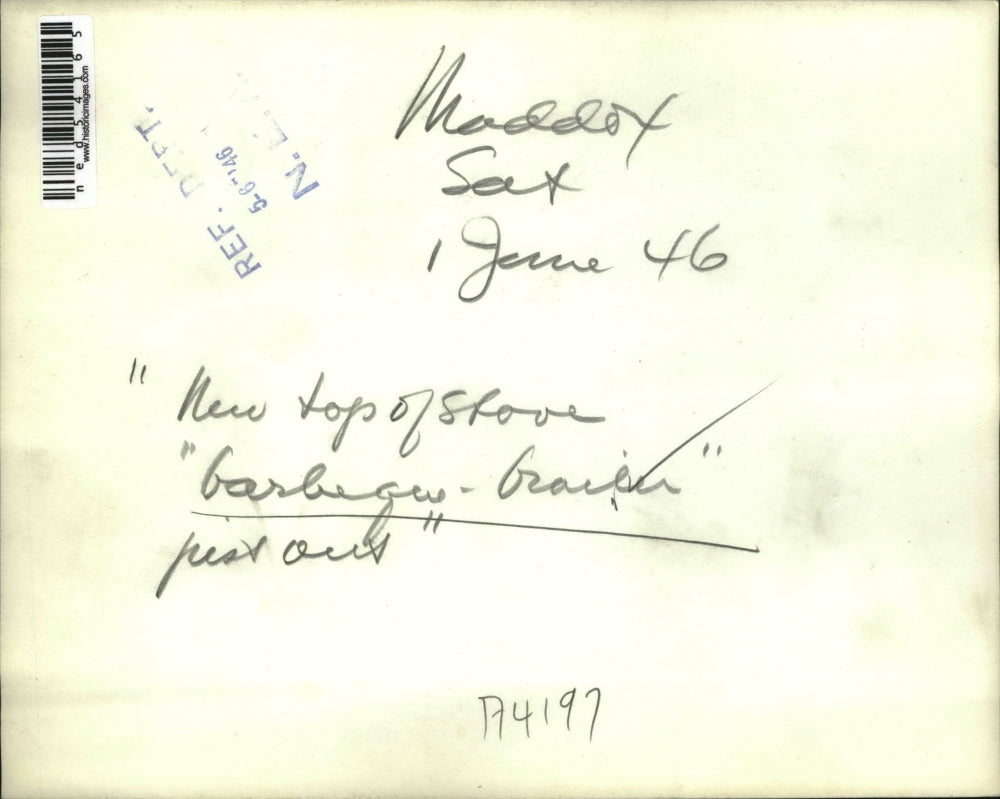 ned54165
www.historicimages.com
REF. DEPT.
5-6-'46
N.E.A.
Maddox
Sat
1 June 46
" New top of stove
"barbecue-broiler"
just out"
A4197